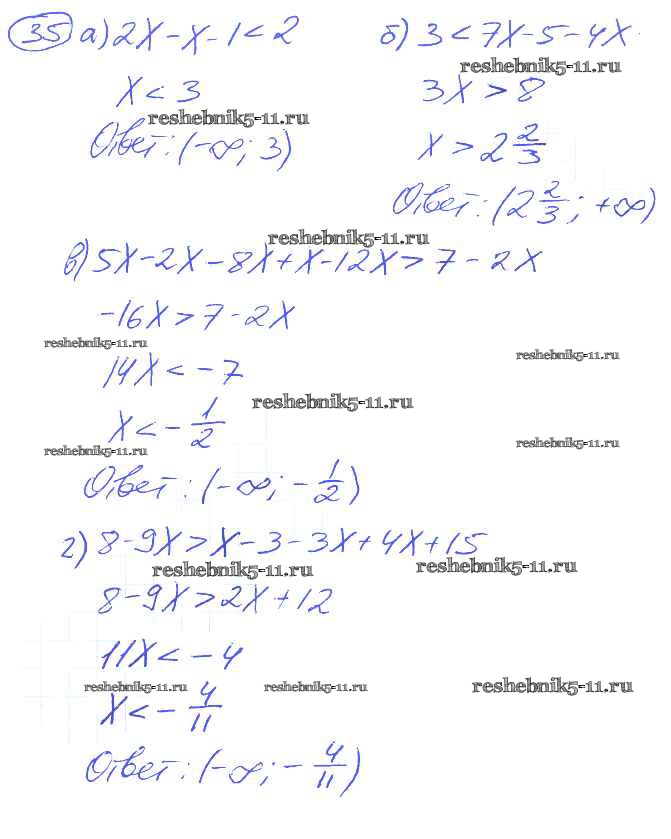 35 а) 2x - x - 1 < 2
б) 3 < 7x - 5 - 4x
reshebnik5-11.ru
x < 3
3x > 8
reshebnik5-11.ru
Ответ: (-∞; 3)
x > 2 2/3
Ответ: (2 2/3; +∞)
reshebnik5-11.ru
в) 5x - 2x - 8x + x - 12x > 7 - 2x
-16x > 7 - 2x
reshebnik5-11.ru
reshebnik5-11.ru
14x < -7
reshebnik5-11.ru
x < - 1/2
reshebnik5-11.ru
reshebnik5-11.ru
Ответ: (-∞; - 1/2)
г) 8 - 9x > x - 3 - 3x + 4x + 15
reshebnik5-11.ru
reshebnik5-11.ru
8 - 9x > 2x + 12
11x < -4
reshebnik5-11.ru
reshebnik5-11.ru
reshebnik5-11.ru
x < - 4/11
Ответ: (-∞; - 4/11)